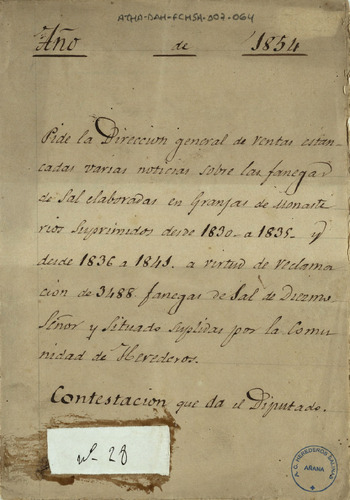 ATHA-DAH-FCHSA-007-064
Año de 1854
Pide la Direccion general de ventas estan-
cadas varias noticias sobre las fanegas
de Sal elaboradas en Granjas de Monaste
rios Suprimidos desde 1830- a 1835- y
desde 1836 a 1841. a virtud de reclama
cion de 3488 fanegas de Sal de Diezmo
Señor y Situado suplidas por la Comu
nidad de Herederos.
Contestacion que da el Diputado.
nº- 28
HEREDEROS SALINAS
AÑANA